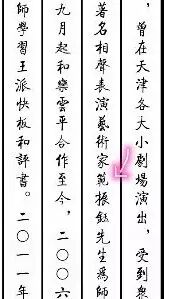 ，曾在天津各大小劇場演出，受到衆
著名相聲表演藝術家範振鈺先生爲師
九月起和欒雲平合作至今，二〇〇六
師學習王派快板和評書。二〇一一年